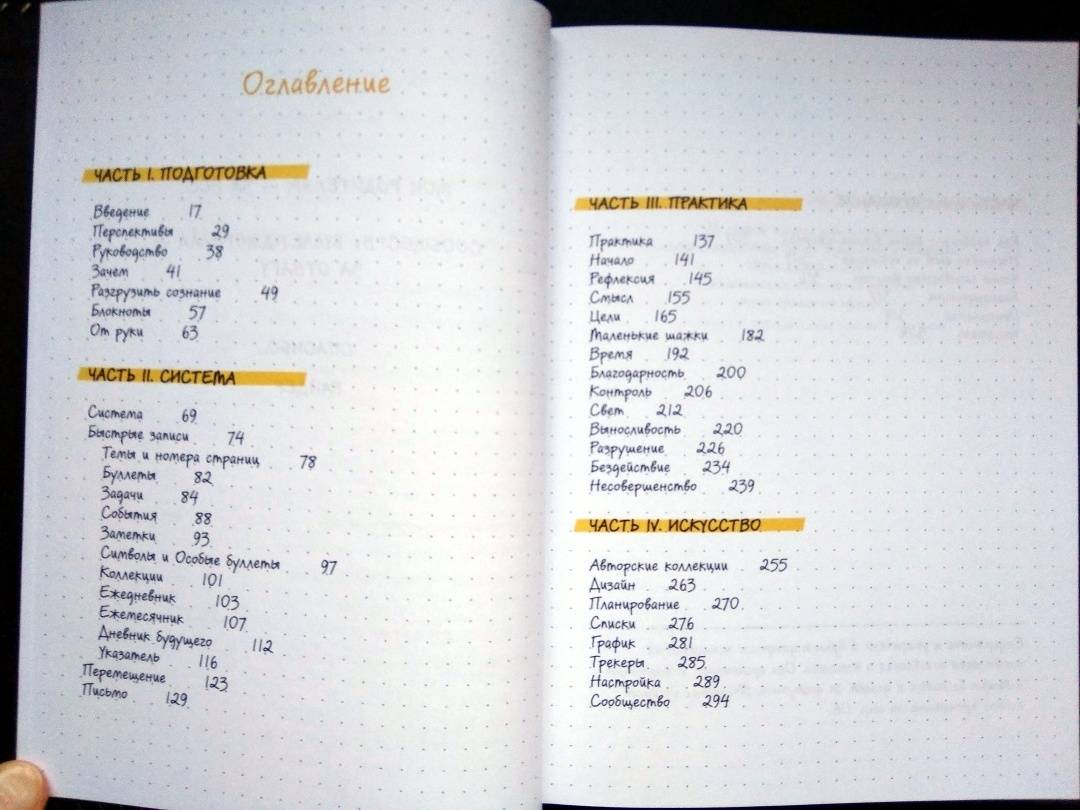 Оглавление
ЧАСТЬ I. ПОДГОТОВКА
Введение 17
Перспективы 29
Руководство 38
Зачем 41
Разгрузить сознание 49
Блокноты 57
От руки 63
ЧАСТЬ II. СИСТЕМА
Система 69
Быстрые записи 74
Темы и номера страниц 78
Буллеты 82
Задачи 84
События 88
Заметки 93
Символы и Особые буллеты 97
Коллекции 101
Ежедневник 103
Ежемесячник 107
Дневник будущего 112
Указатель 116
Перемещение 123
Письмо 129
ЧАСТЬ III. ПРАКТИКА
Практика 137
Начало 141
Рефлексия 145
Смысл 155
Цели 165
Маленькие шажки 182
Время 192
Благодарность 200
Контроль 206
Свет 212
Выносливость 220
Разрушение 226
Бездействие 234
Несовершенство 239
ЧАСТЬ IV. ИСКУССТВО
Авторские коллекции 255
Дизайн 263
Планирование 270
Списки 276
График 281
Трекеры 285
Настройка 289
Сообщество 294